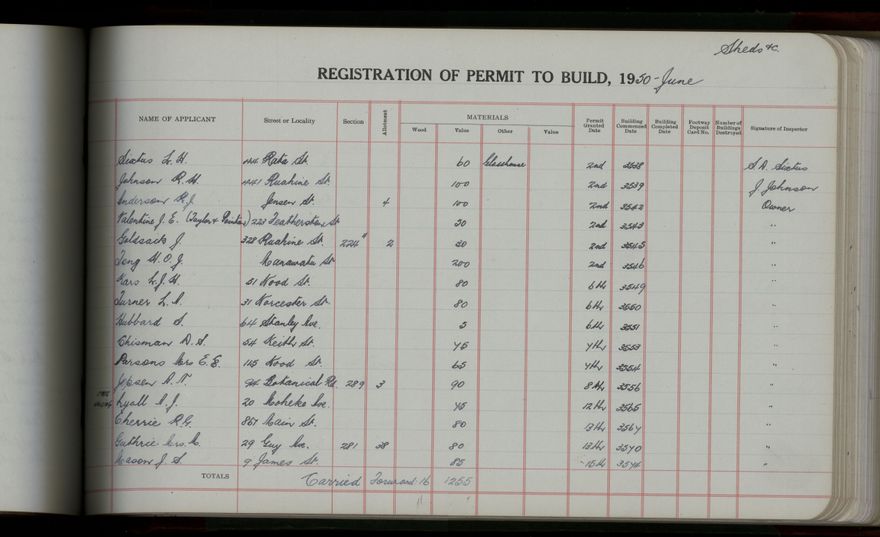 Sheds &c.
REGISTRATION OF PERMIT TO BUILD, 1950 - June
NAME OF APPLICANT Street or Locality Section Allotment MATERIALS Wood Value Other Value Permit Granted Date Building Commenced Date Building Completed Date Footway Deposit Card No. Number of Buildings Destroyed Signature of Inspector
Sixtus L. H. Rata St. 60 Glasshouse 2nd 3538 S. A. Sixtus
Johnson R. H. 441 Ruahine St. 100 2nd 3539 J Johnson
Anderson R. J. Jensen St. 4 100 2nd 3542 Owner
Valentine J. E. 223 Featherston St 2nd 3543 "
Goldsack J. 328 Ruahine St. 224 2 2nd 3545 "
H. O. J. Manawatu St 200 2nd 3546 "
L. J. H. 51 Wood St. 80 6th 3549 "
Turner L. A. 31 Worcester St. 80 6th 3550 "
Hubbard S. 64 Stanley Ave. 5 6th 3551 "
Chisman D. S. 54 Keith St. 45 7th 3553 "
Parsons Mrs E. E. 145 Wood St. 65 7th 3554 "
94 Botanical Rd. 289 3 90 8th 3556 "
Lyall A. J. 20 Moheke Ave. 45 12th 3565 "
Cherrie R. G. 867 Main St. 80 13th 3567 "
Guthrie Mrs M. 29 Guy Ave. 281 38 80 13th 3570 "
Mason J S. 9 James St. 85 15th 3574 "
TOTALS Carried Forward 16 1255